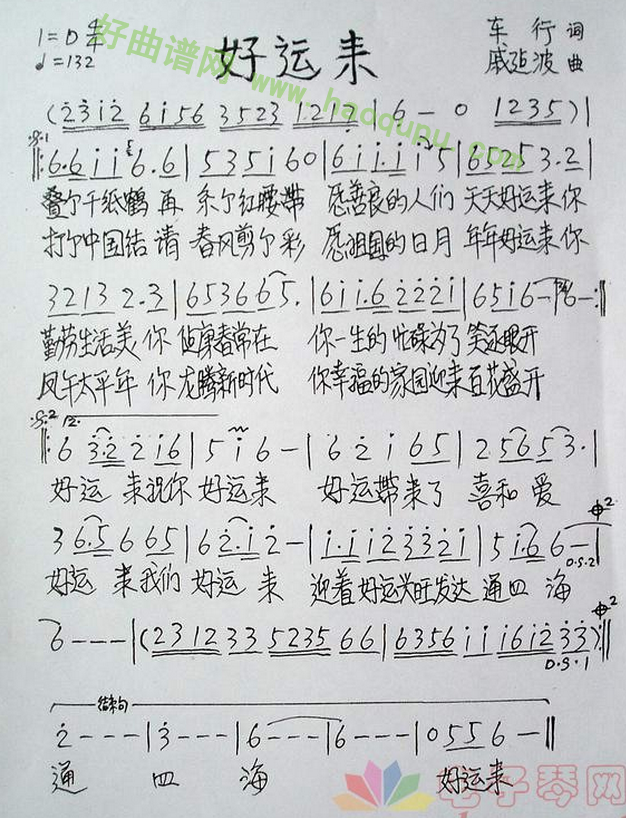 1=D 4/4 好运来 车行 词
♩=132 戚建波 曲
好曲谱网
www.haoqupu.com
(2312 6156 3523 1217 | 6 - 0 1235) |
6.6 1 1 6.6 | 535160 | 6 1 1.1 1 5 | 65253.2 |
叠个千纸鹤 再 系个红腰带 愿善良的人们 天天好运来 你
打个中国结 请 春风剪个彩 愿祖国的日月 年年好运来 你
3213 2.3 | 6536 65. | 611.6 2221 | 6516- | 6- :||
勤劳生活美 你 健康春常在 你一生的 忙碌为了 笑逐颜开
风午太平年 你 龙腾新时代 你幸福的 家园迎来 百花盛开
6 3.2 2 16 | 5 1 6 - | 6 2 1 65 | 2 56 53. |
好运 来祝你 好运来 好运带来了 喜和 爱
3 6.5 6 65 | 6 2.1 2 - | 1.1 12 33 21 | 5 1.6 6 -
D.S.2
好运 来我们 好运 来 迎着好运兴旺发达 通四 海
6 - - - | (2312 33 5235 66 | 6356 1 1 1612 33) :||
D.S.1
结束句
2 - - - | 3 - - - | 6 - - - | 6 - - - | 0 5 5 6 - ||
通 四 海 好运来
电子琴网